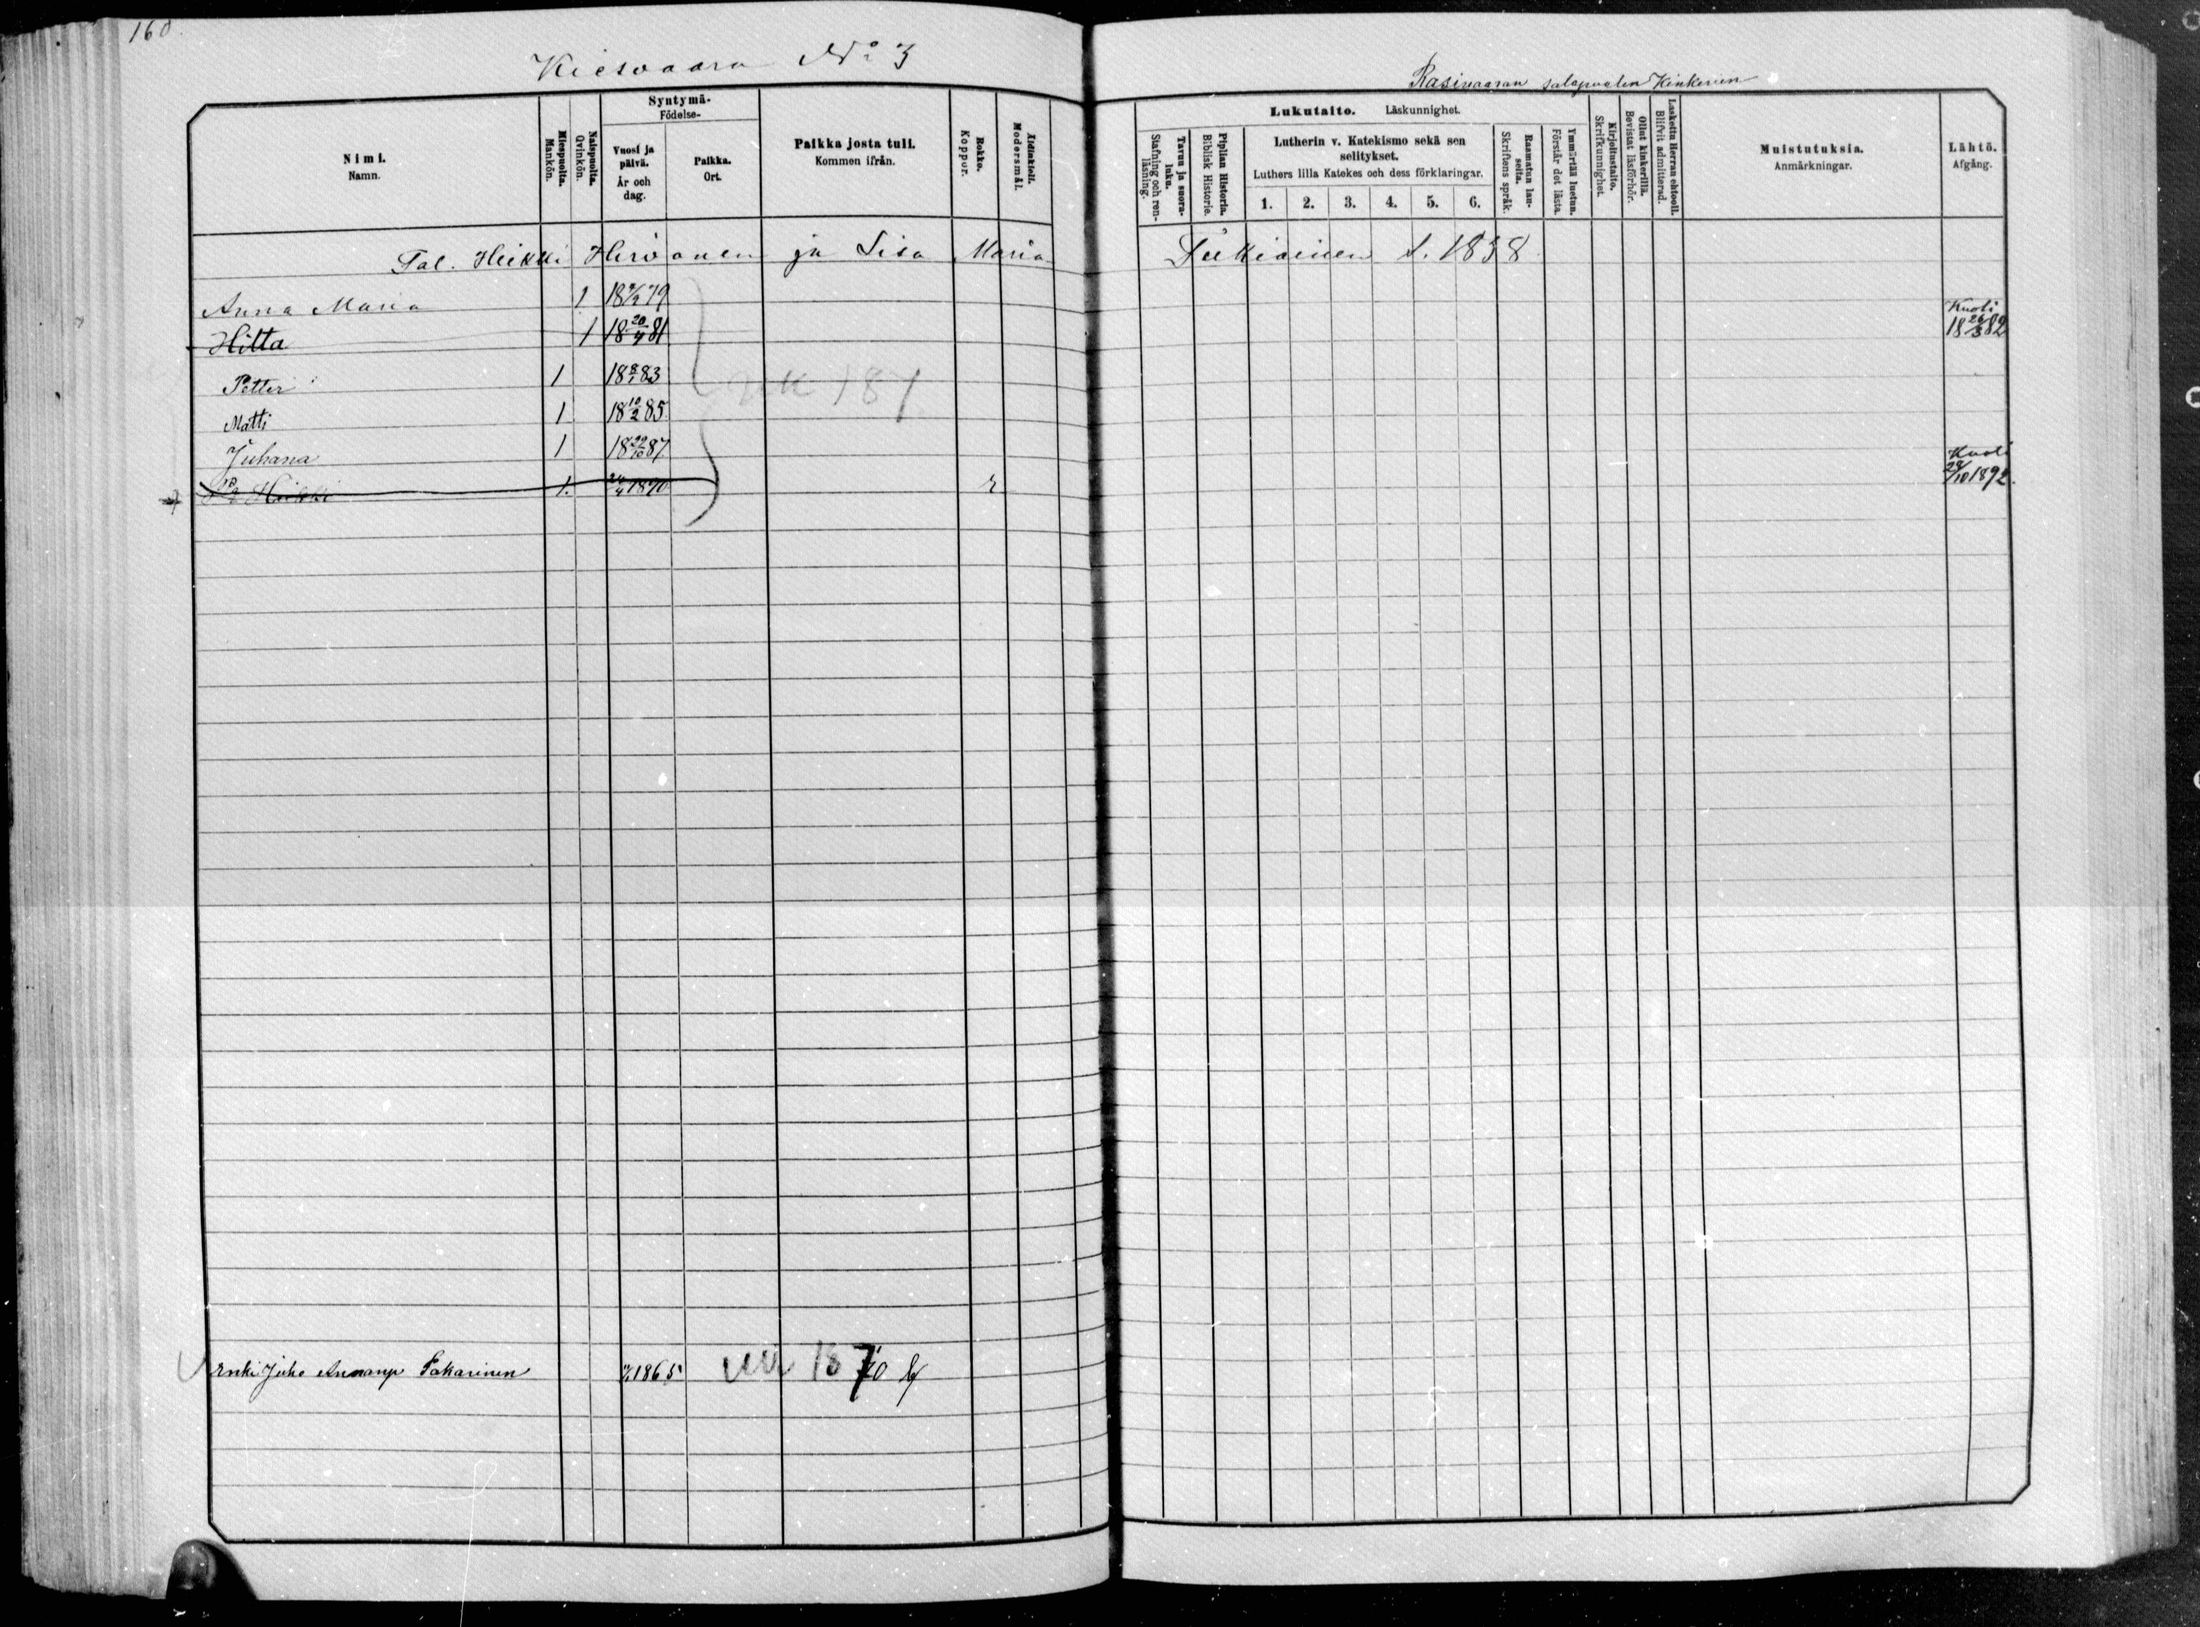 160.
Kiesvaara No 3
Rasivaaran salopuolen Kinkerien
Nimi.
Namn.
Miespuolta.
Mankön.
Naispuolta.
Qvinkön.
Syntymä-
Födelse-
Vuosi ja päivä.
År och dag.
Paikka.
Ort.
Paikka josta tuli.
Kommen ifrån.
Rokko.
Koppor.
Äidinkieli.
Modersmål.
Lukutaito. Läskunnighet.
Tavuu ja suora-luku.
Stafning och ren-läsning.
Piplian Historia.
Biblisk Historie.
Lutherin v. Katekismo sekä sen selitykset.
Luthers lilla Katekes och dess förklaringar.
1. 2. 3. 4. 5. 6.
Raamatun lau-seita.
Skriftens språk.
Ymmärtää luetun.
Förstår det lästa.
Kirjoitustaito.
Skrifkunnighet.
Ollut kinkerillä.
Bevistat läsförhör.
Laskettu Herran ehtooll.
Blifvit admitterad.
Muistutuksia.
Anmärkningar.
Lähtö.
Afgång.
Tal. Heikki Hirvonen ja Lisa Maria Tukiainen s. 1838
Anna Maria 1 18 79
Kuoli
Hilta 1 18 20/4 81 18 26/3 82
Petter 1 18 8/1 83
Matti 1 18 10/2 85
Juhana 1 18 22/10 87
Kuoli
Heikki 1. 24/4 1890 r 28/10 1892.
UK 187
Enki Juho Annanp Sakarinen 1865 UK 187